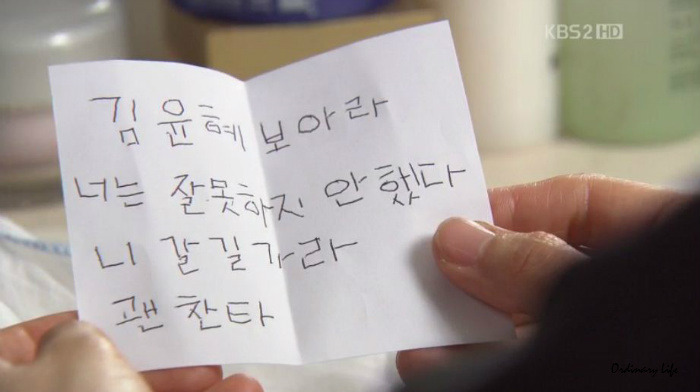 KBS2 HD
김윤혜 보아라
너는 잘못하지 안했다
니 갈길가라
괜찬타
Oidinary life